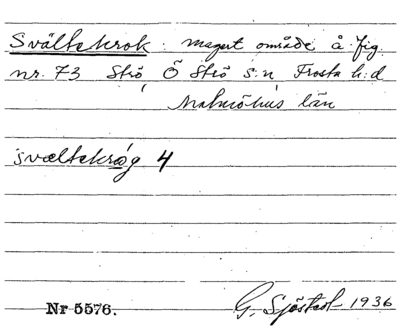 Svältekrok : magert område å fig.
nr. 73 Strö, Ö Strö s:n Frosta h:d
Malmöhus län
svæltekråg 4
Nr 5576. G. Sjöstedt 1936